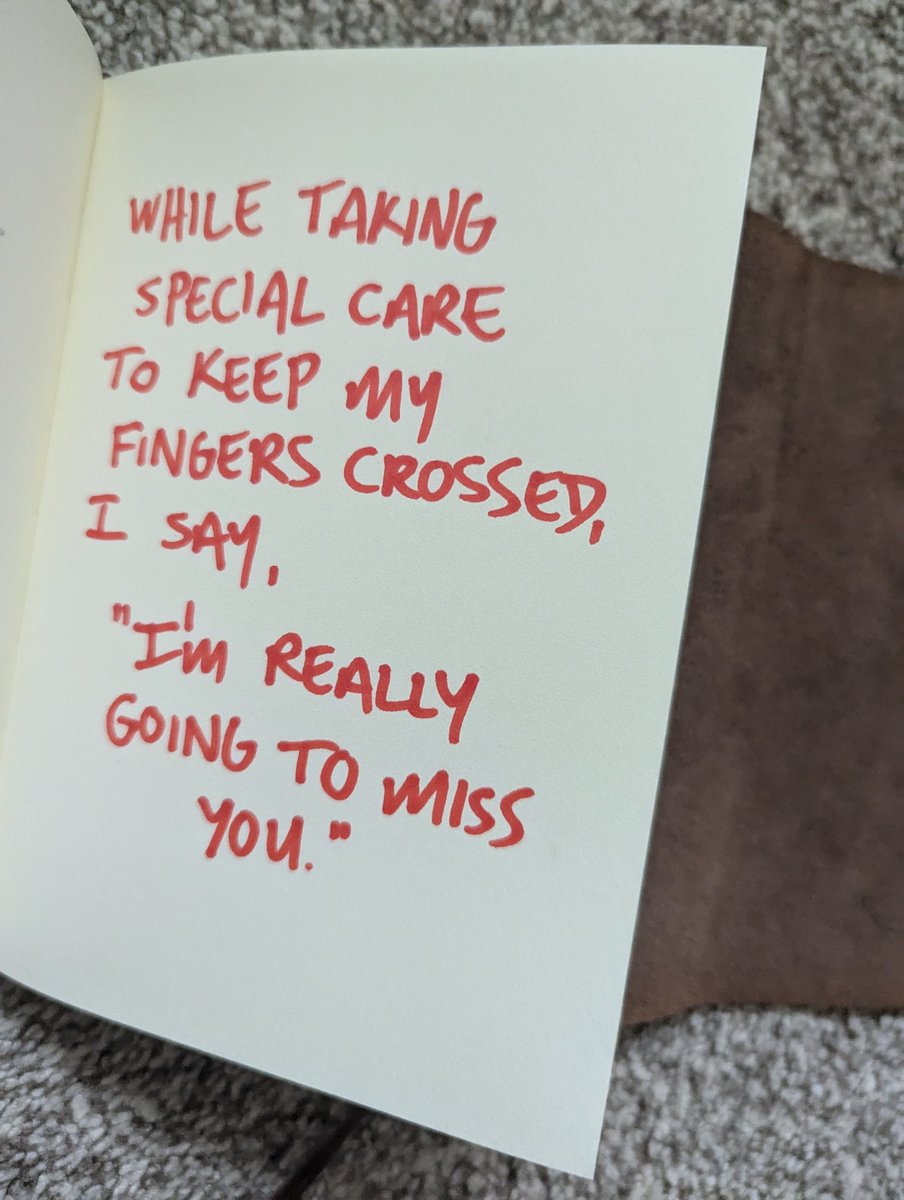 WHILE TAKING
SPECIAL CARE
TO KEEP MY
FINGERS CROSSED,
I SAY,
"I'M REALLY
GOING TO MISS
YOU."